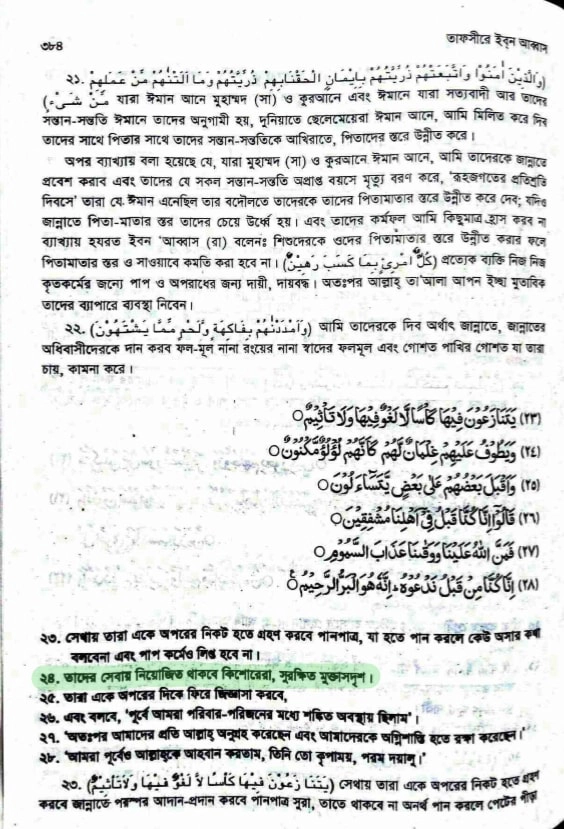 ৩৮৪
তাফসীরে ইবন আব্বাস
২১. (وَالَّذِينَ اٰمَنُوْا وَاتَّبَعَتْهُمْ ذُرِّيَّتُهُمْ بِاِيْمَانٍ اَلْحَقْنَابِهِمْ ذُرِّيَّتَهُمْ وَمَا اَلَتْنٰهُمْ مِّنْ عَمَلِهِمْ
مِّنْ شَىْءٍ) যারা ঈমান আনে মুহাম্মদ (সা) ও কুরআনে এবং ঈমানে যারা সত্যবাদী আর তাদের
সন্তান-সন্ততি ঈমানে তাদের অনুগামী হয়, দুনিয়াতে ছেলেমেয়েরা ঈমান আনে, আমি মিলিত করে দিব
তাদের সাথে পিতার সাথে তাদের সন্তান-সন্ততিকে আখিরাতে, পিতাদের স্তরে উন্নীত করে।
অপর ব্যাখ্যায় বলা হয়েছে যে, যারা মুহাম্মদ (সা) ও কুরআনে ঈমান আনে, আমি তাদেরকে জান্নাতে
প্রবেশ করাব এবং তাদের যে সকল সন্তান-সন্ততি অপ্রাপ্ত বয়সে মৃত্যু বরণ করে, 'রূহজগতের প্রতিশ্রুতি
দিবসে' তারা যে ঈমান এনেছিল তার বদৌলতে তাদেরকে তাদের পিতামাতার স্তরে উন্নীত করে দেব; যদিও
জান্নাতে পিতা-মাতার স্তর তাদের চেয়ে ঊর্ধ্বে হয়। এবং তাদের কর্মফল আমি কিছুমাত্র হ্রাস করব না
ব্যাখ্যায় হযরত ইবন 'আব্বাস (রা) বলেনঃ শিশুদেরকে ওদের পিতামাতার স্তরে উন্নীত করার ফলে
পিতামাতার স্তর ও সাওয়াবে কমতি করা হবে না। (كُلُّ امْرِئٍ بِمَا كَسَبَ رَهِيْنٌ) প্রত্যেক ব্যক্তি নিজ নিজ
কৃতকর্মের জন্যে পাপ ও অপরাধের জন্য দায়ী, দায়বদ্ধ। অতঃপর আল্লাহ্ তা'আলা আপন ইচ্ছা মুতাবিক
তাদের ব্যাপারে ব্যবস্থা নিবেন।
২২. (وَاَمْدَدْنٰهُمْ بِفَاكِهَةٍ وَّلَحْمٍ مِّمَّا يَشْتَهُوْنَ) আমি তাদেরকে দিব অর্থাৎ জান্নাতে, জান্নাতের
অধিবাসীদেরকে দান করব ফল-মূল নানা রংয়ের নানা স্বাদের ফলমূল এবং গোশত পাখির গোশত যা তারা
চায়, কামনা করে।
(٢٣) يَتَنَازَعُوْنَ فِيْهَا كَاْسًا لَّا لَغْوٌ فِيْهَا وَلَا تَاْثِيْمٌ
(٢٤) وَيَطُوْفُ عَلَيْهِمْ غِلْمَانٌ لَّهُمْ كَاَنَّهُمْ لُؤْلُؤٌ مَّكْنُوْنٌ
(٢٥) وَاَقْبَلَ بَعْضُهُمْ عَلٰى بَعْضٍ يَّتَسَآءَلُوْنَ
(٢٦) قَالُوْٓا اِنَّا كُنَّا قَبْلُ فِيْٓ اَهْلِنَا مُشْفِقِيْنَ
(٢٧) فَمَنَّ اللّٰهُ عَلَيْنَا وَوَقٰىنَا عَذَابَ السَّمُوْمِ
(٢٨) اِنَّا كُنَّا مِنْ قَبْلُ نَدْعُوْهُ ۗ اِنَّهٗ هُوَ الْبَرُّ الرَّحِيْمُ ۠
২৩. সেথায় তারা একে অপরের নিকট হতে গ্রহণ করবে পানপাত্র, যা হতে পান করলে কেউ অসার কথা
বলবেনা এবং পাপ কর্মেও লিপ্ত হবে না।
২৪. তাদের সেবায় নিয়োজিত থাকবে কিশোরেরা, সুরক্ষিত মুক্তাসদৃশ।
২৫. তারা একে অপরের দিকে ফিরে জিজ্ঞাসা করবে,
২৬. এবং বলবে, 'পূর্বে আমরা পরিবার-পরিজনের মধ্যে শঙ্কিত অবস্থায় ছিলাম'।
২৭. 'অতঃপর আমাদের প্রতি আল্লাহ্ অনুগ্রহ করেছেন এবং আমাদেরকে অগ্নিশাস্তি হতে রক্ষা করেছেন।'
২৮. 'আমরা পূর্বেও আল্লাহকে আহবান করতাম, তিনি তো কৃপাময়, পরম দয়ালু।'
২৩. (يَتَنَا زَعُوْنَ فِيْهَا كَاْسًا لاَّ لَغْوٌ فِيْهَا وَلاَتَاثِيْمٌ) সেথায় তারা একে অপরের নিকট হতে গ্রহণ
করবে জান্নাতে পরস্পর আদান-প্রদান করবে পানপাত্র সুরা, তাতে থাকবে না অনর্থ পান করলে পেটের পীড়া